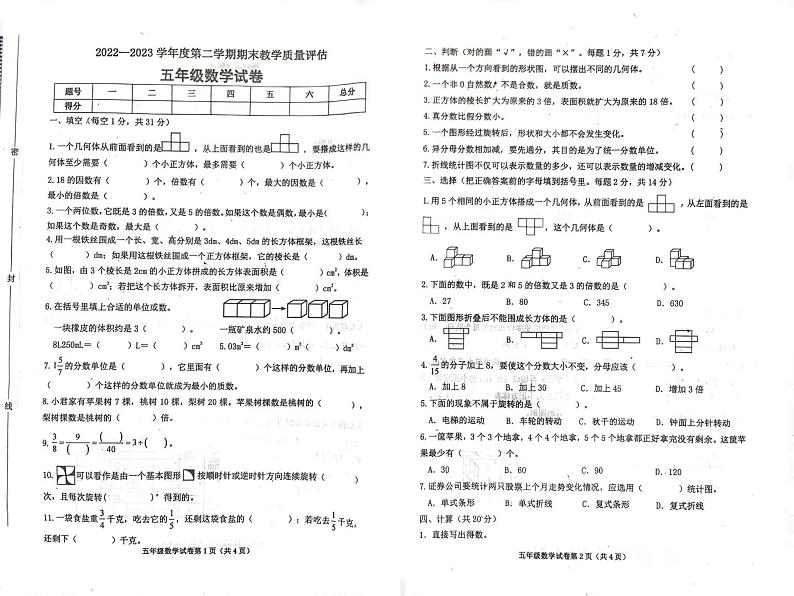 2022—2023 学年度第二学期期末教学质量评估
五年级数学试卷
题号 一 二 三 四 五 六 总分
得分
一、填空（每空 1 分，共 31 分）
1.一个几何体从前面看到的是 ，从上面看到的也是 ，要搭成这样的几
何体至少需要（ ）个小正方体，最多需要（ ）个小正方体。
2.18 的因数有（ ）个，倍数有（ ）个，最大的因数是（ ），
最小的倍数是（ ）。
3.一个两位数,它既是 3 的倍数,又是 5 的倍数。如果这个数是偶数,最小是( )；
如果这个数是奇数，最大是（ ）。
4.用一根铁丝围成一个长、宽、高分别是 3dm、4dm、5dm 的长方体框架，这根铁丝长
（ ）dm；如果用这根铁丝围成一个正方体框架，它的棱长是（ ）dm。
5.如图，由 3 个棱长是 2cm 的小正方体拼成的长方体表面积是（ ）cm²，体积是
（ ）cm³；若把这个长方体拆开，表面积比原来增加（ ）cm²。
6.在括号里填上合适的单位或数。
一块橡皮的体积约是 3（ ） 一瓶矿泉水约 500（ ）
8L250mL=（ ）L=（ ）cm³ 5.03m³=（ ）m³（ ）dm³
7. 1 5/7 的分数单位是（ ），它里面有（ ）个这样的分数单位，再加上
（ ）个这样的分数单位就成为最小的质数。
8.小君家有苹果树 7 棵，桃树 10 棵，梨树 20 棵。苹果树棵数是桃树的（ ），
梨树棵数是桃树的（ ）倍。
9. 3/8 = 9/( ) = ( )/40 = 3÷( )。
10. 可以看作是由一个基本图形 按顺时针或逆时针方向连续旋转（ ）
次，且每次旋转（ ）得到的。
11.一袋食盐重 3/4 千克，吃去它的 1/5 ，还剩这袋食盐的（ ）；若吃去 1/5 千克，
还剩下（ ）千克。
五年级数学试卷第 1 页（共 4 页）
密
封
线
二、判断（对的画“√”，错的画“×”。每题 1 分，共 7 分）
1.根据从一个方向看到的形状图，可以摆出不同的几何体。 （ ）
2.一个非 0 自然数，不是合数，就是质数。 （ ）
3.正方体的棱长扩大为原来的 3 倍，表面积就扩大为原来的 18 倍。（ ）
4.真分数比假分数小。 （ ）
5.一个图形经过旋转后，形状和大小都不会发生变化。 （ ）
6.异分母分数相加减，要先通分，其目的是为了统一分数单位。 （ ）
7.折线统计图不仅可以表示数量的多少，还可以表示数量的增减变化。（ ）
三、选择（把正确答案前的字母填到括号里。每题 2 分，共 14 分）
1.用 5 个相同的小正方体搭成一个几何体，从前面看到的是 ，从左面看到的是
，从上面看到的是 ，这个几何体是（ ）。
A. B. C. D.
2.下面的数中，既是 2 和 5 的倍数又是 3 的倍数的是（ ）。
A. 27 B. 80 C. 345 D. 630
3.下面图形折叠后不能围成长方体的是（ ）。
A. B. C. D.
4. 4/15 的分子加上 8，要使这个分数大小不变，分母应该（ ）。
A. 加上 8 B. 加上 30 C. 加上 45 D. 增加 3 倍
5.下面的现象不属于旋转的是（ ）。
A. 电梯的运动 B. 车轮的转动 C. 秋千的运动 D. 钟面上分针转动
6.一筐苹果，3 个 3 个地拿，4 个 4 个地拿，5 个 5 个地拿都正好拿完没有剩余。这筐苹
果最少有（ ）个。
A. 30 B. 60 C. 90 D. 120
7.证券公司要统计两只股票上个月走势变化情况，应选用（ ）统计图。
A. 单式条形 B. 单式折线 C. 复式条形 D. 复式折线
四、计算（共 20 分）
1. 直接写出得数。
五年级数学试卷第 2 页（共 4 页）